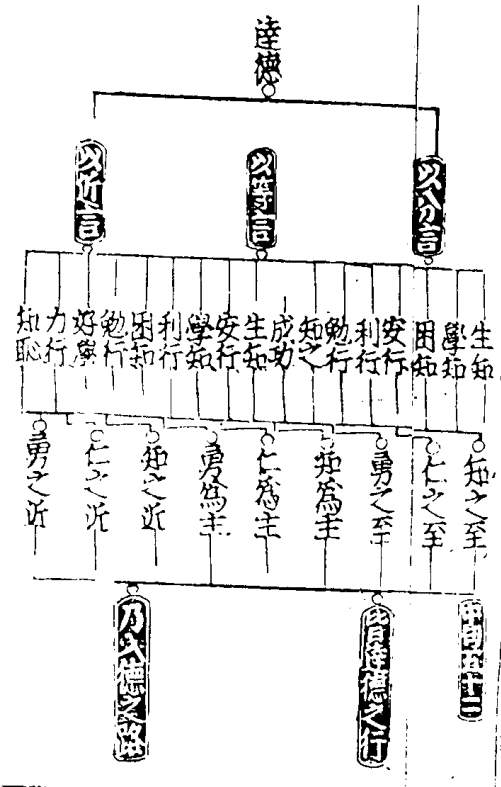 達德
以分言
以等言
以近言
生知
學知
困知
安行
利行
勉行
知之
成功
生知
安行
學知
利行
困知
勉行
好學
力行
知恥
知之至
仁之至
勇之至
知爲主
仁爲主
勇爲主
知之近
仁之近
勇之近
五十二
皆達德之行
乃入德之路